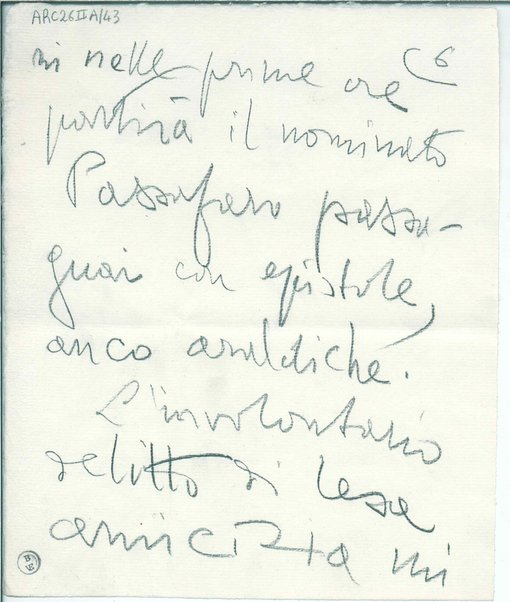 ARC26IIA/43
C6
ni nelle prime ore
partirà il nominato
Passafaro passa-
guai con epistole,
anco araldiche.
L'involontario
delitto di lesa
amicizia mi